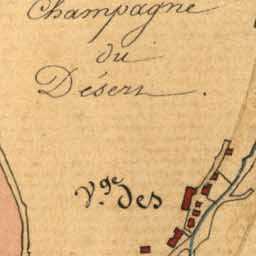 Champagne
du
Désert.
V.ge des